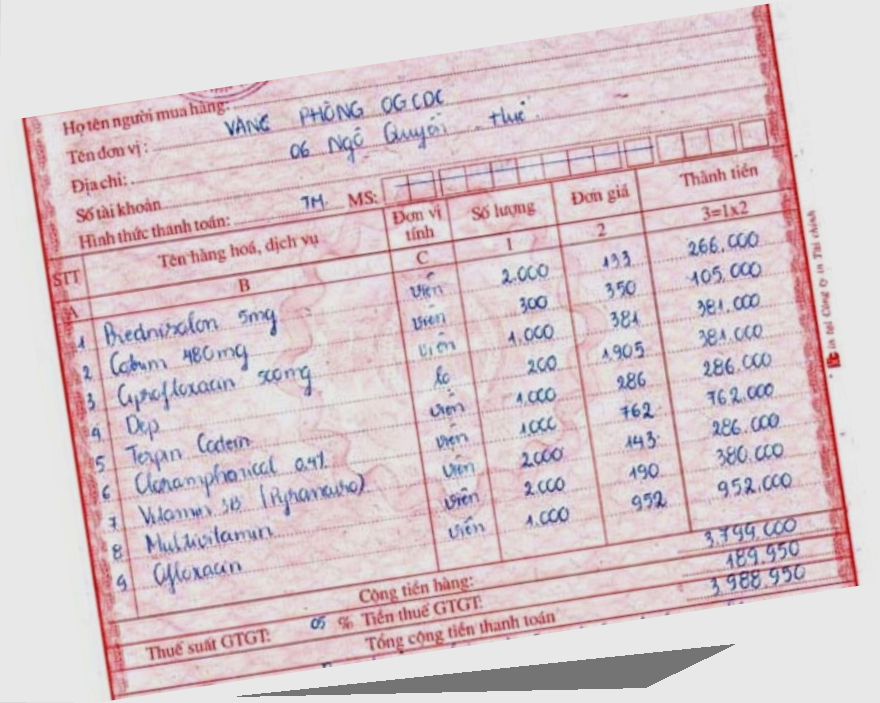 Họ tên người mua hàng:
Tên đơn vị: VĂNG PHÒNG OGCDC
Địa chỉ: 06 Ngô Quyền Huế
Số tài khoản
Hình thức thanh toán: TM MS:
STT Tên hàng hoá, dịch vụ Đơn vị tính Số lượng Đơn giá Thành tiền
A B C 1 2 3=1x2
1 Prednisolon 5mg viên 2.000 133 266.000
2 Cotrim 480mg viên 300 350 105.000
3 Ciprofloxacin 500mg viên 1.000 381 381.000
4 Dep lọ 200 1.905 381.000
5 Terpin Codein viên 1.000 286 286.000
6 Cloramphenical 0,4% viên 1000 762 762.000
7 Vitamin 3B viên 2.000 143 286.000
8 Multivitamin viên 2.000 190 380.000
9 Ofloxacin viên 1.000 952 952.000
Cộng tiền hàng: 3.799.000
Thuế suất GTGT: 05 % Tiền thuế GTGT: 189.950
Tổng cộng tiền thanh toán 3.988.950
in tại Công ty in Tài chính